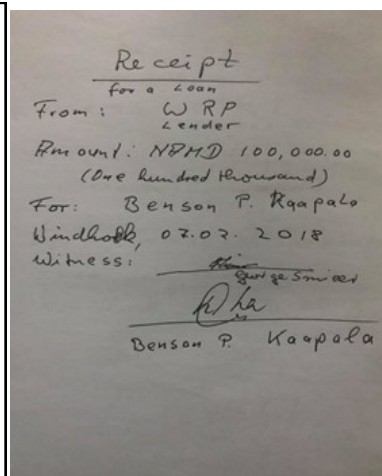 Receipt
for a Loan
From: WRP
Lender
Amount: NAMD 100,000.00
(One hundred thousand)
For: Benson P. Kaapala
Windhoek, 07.02.2018
Witness:
George
Benson P. Kaapala